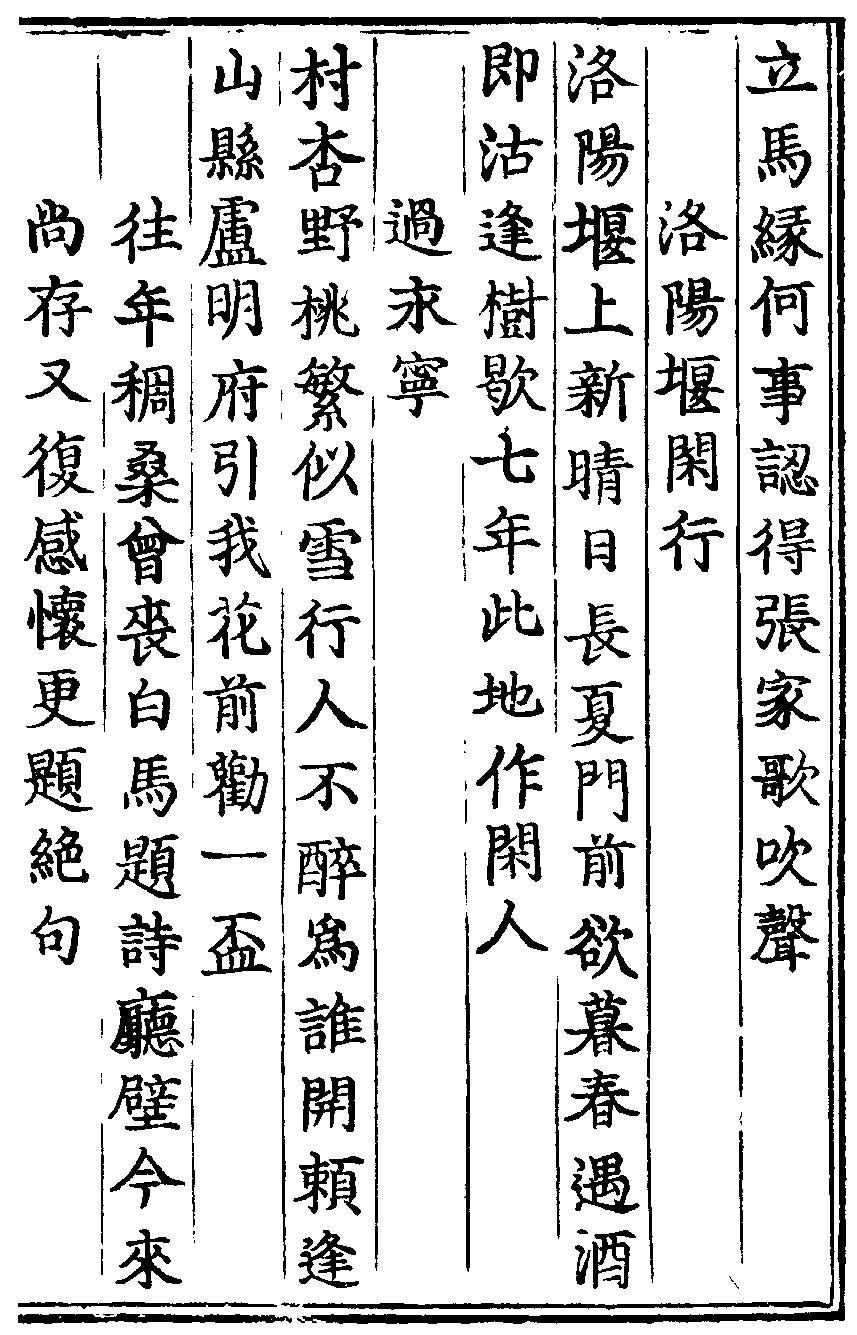 立馬縁何事認得張家歌吹聲
洛陽堰閑行
洛陽堰上新晴日長夏門前欲暮春遇酒
即沽逢樹歇七年此地作閑人
過永寧
村杏野桃繁似雪行人不醉爲誰開頼逢
山縣盧明府引我花前勸一盃
往年稠桑曾喪白馬題詩廳壁今來
尚存又復感懷更題絶句